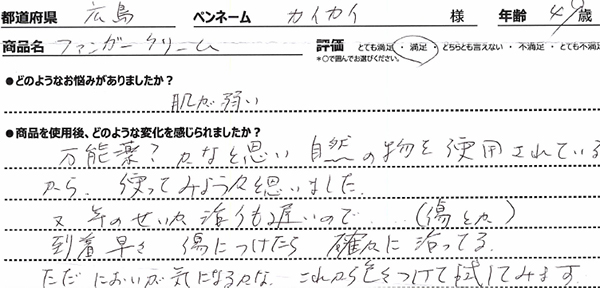 都道府県 広島 ペンネーム カイカイ 様 年齢 49歳
商品名 ファンガークリーム 評価 とても満足・満足・どちらとも言えない・不満足・とても不満
*〇で囲んでお選びください。
●どのようなお悩みがありましたか？
肌が弱い
●商品を使用後、どのような変化を感じられましたか？
万能薬？かなと思い 自然の物を使用されている
から、使ってみようかと思いました。
又 年のせいか 治りも遅いので…(傷とか)
到着早々 傷につけたら 確かに治ってる。
ただ においが気になるかな、これから色々つけて試してみます